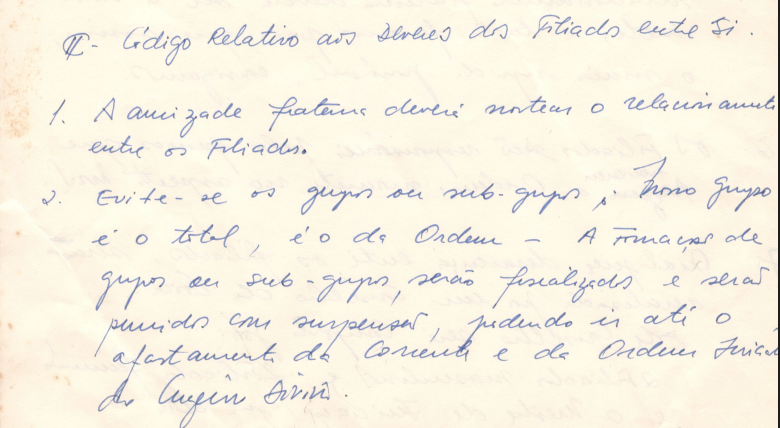 II - Código Relativo aos Deveres dos Filiados entre Si.
1. A amizade fraterna deverá nortear o relacionamento
entre os Filiados.
2. Evite-se os grupos ou sub-grupos, Nosso Grupo
é o total, é o da Ordem - A Formação de
grupos ou sub-grupos, serão fiscalizados e serão
punidos com suspensão, podendo ir até o
afastamento da Corrente e da Ordem Inicia
do Divino.